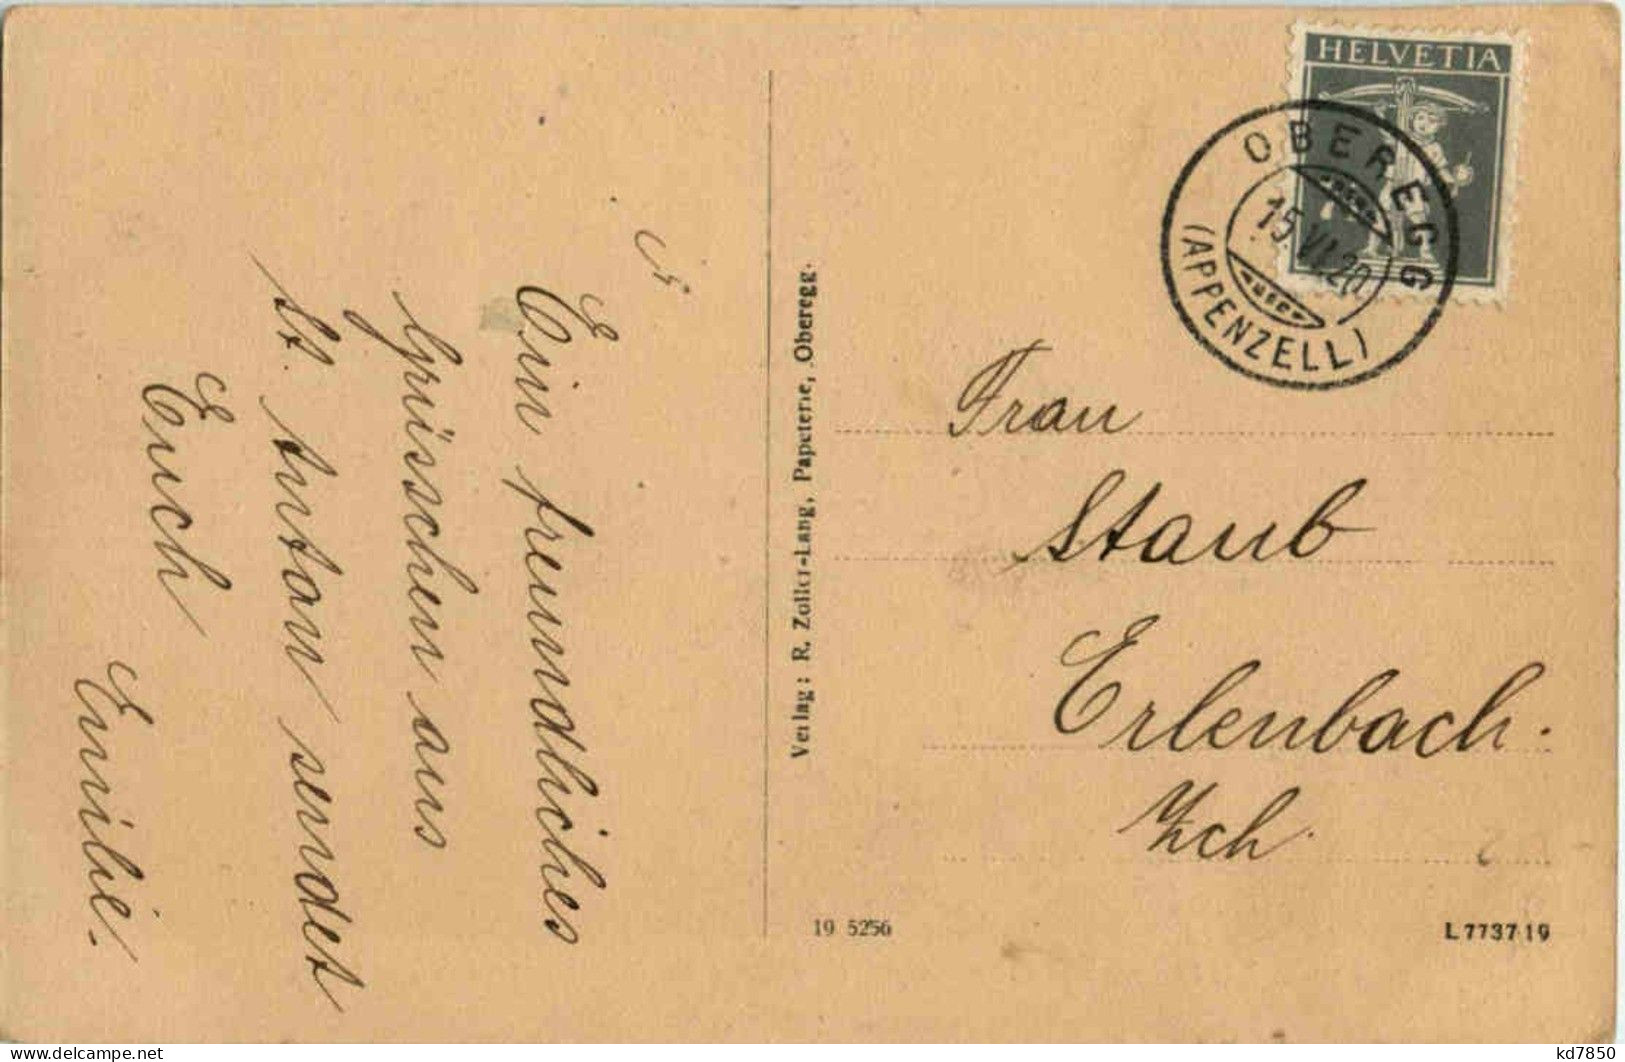 Ein freundliches
Grüsschen aus
St. Anton sendet
Euch
Emilie.
Verlag: R. Zoller-Lang, Papeterie, Oberegg.
HELVETIA
OBEREGG
15.VI.20
(APPENZELL)
Frau
Staub
Erlenbach.
Zch.
19 5256
L 7737 19
kd7850